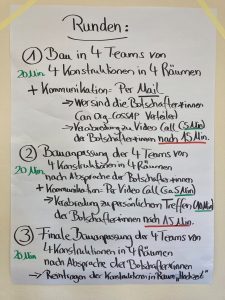 Runden:
① Bau in 4 Teams von
20 Min. 4 Konstruktionen in 4 Räumen
+ Kommunikation: Per Mail
→ Wer sind die Botschafter*innen
(an org. verteiler)
→ Verabredung zu Video Call (5 Min)
der Botschafter*innen nach 15 Min.
② Bauanpassung der 4 Teams von
20 Min. 4 Konstruktionen in 4 Räumen
nach Absprache der Botschafter*innen
+ Kommunikation: Per Video Call (5 Min)
→ Verabredung zu persönlichen Treffen (10 Min)
der Botschafter*innen nach 15 Min.
③ Finale Bauanpassung der 4 Teams von
20 Min 4 Konstruktionen in 4 Räumen
nach Absprache der Botschafter*innen
→ der Konstruktionen in Raum "Hochzeit"